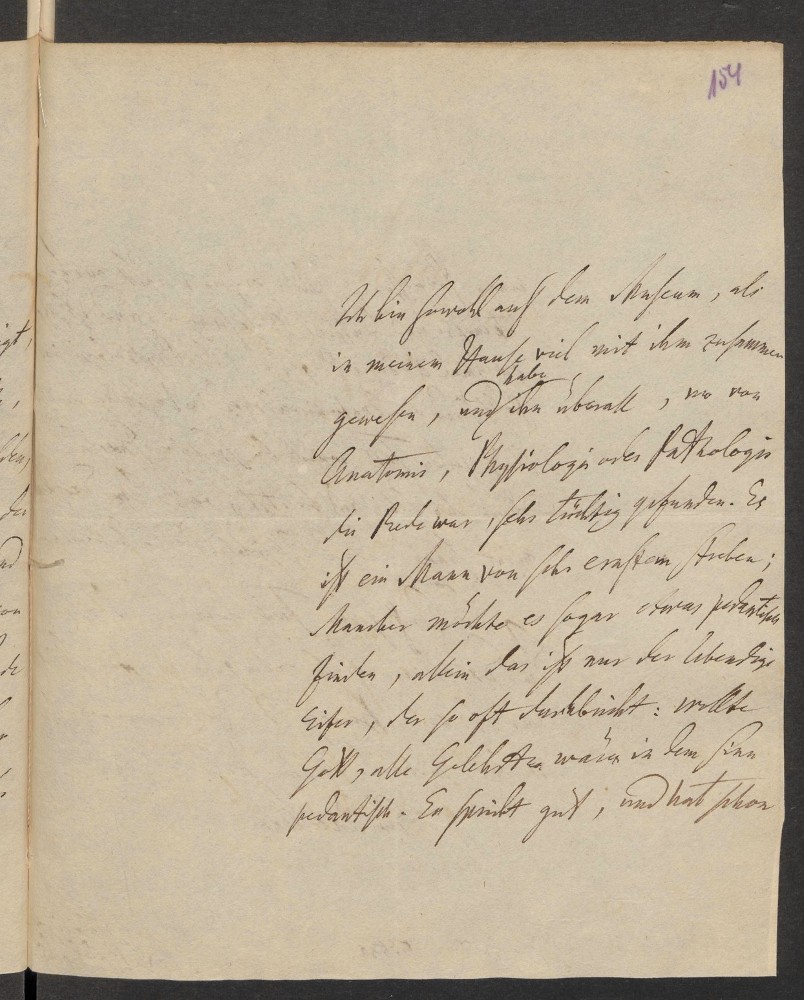 154
Ich bin sowohl auf dem Museum, als
in meinem Hause viel mit ihm zusammen
habe
gewesen, und ihn überall, wo von
Anatomie, Physiologie oder Pathologie
die Rede war, sehr tüchtig gefunden. Er
ist ein Mann von sehr ernstem Streben;
Mancher möchte es sogar etwas pedantisch
finden, allein das ist nur der lebendige
Eifer, der so oft durchbricht: wollte
Gott, alle Gelehrten wären in dem Sinn
pedantisch. Er spricht gut, und hat schon